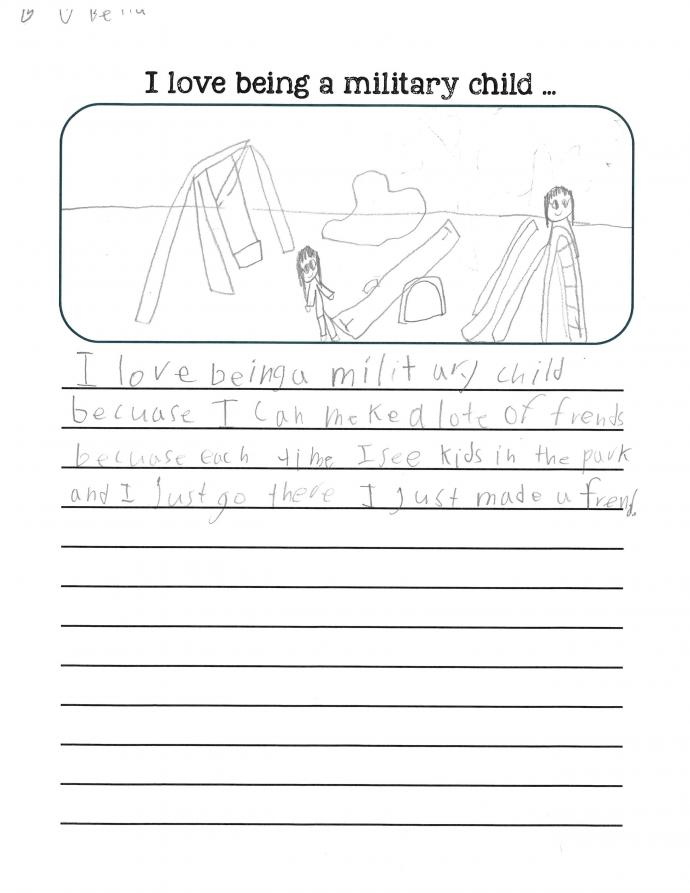 I love being a military child ...
I love being a military child
becuase I can maked lote of frends
becuase each time I see kids in the park
and I Just go there I just made a frend.